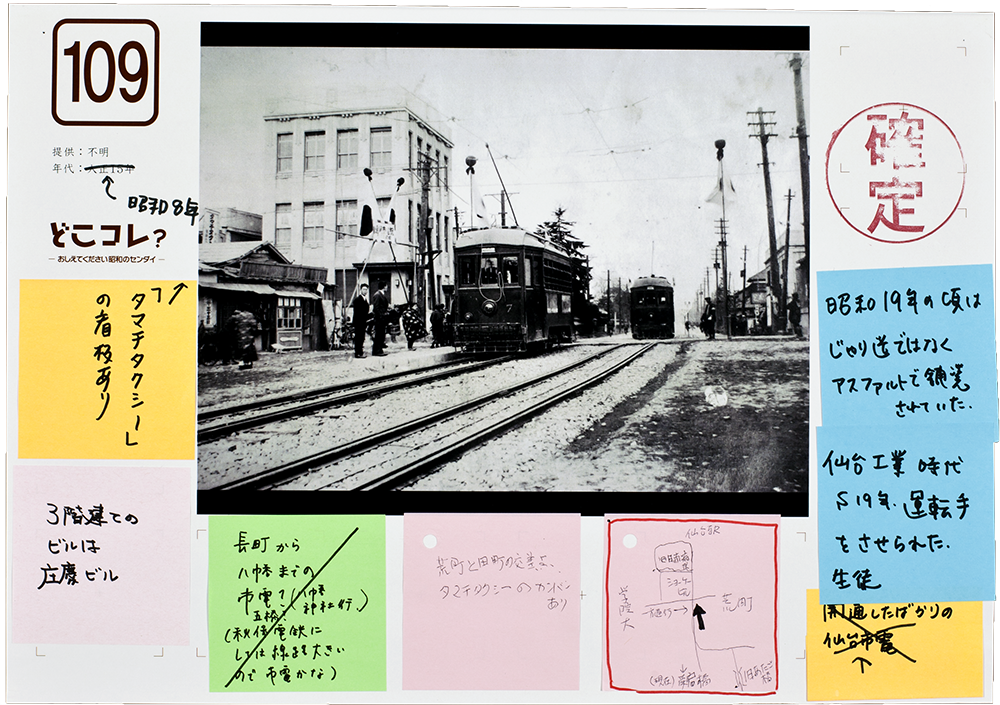 109
提供：不明
年代：大正15年
昭和8年
どこコレ？
－おしえてください昭和のセンダイ－
「タマチタクシー」
の看板あり
3階建ての
ビルは
庄慶ビル
長町から
八幡までの
市電？(八幡神社行)
五橋？
(秋保電鉄に
しては線路も大きい
ので市電かな)
荒町と田町の交差点、
タマチタクシーのカンバン
あり
仙台駅
荒町
(現在)
7
確定
昭和19年の頃は
じゃり道ではなく
アスファルトで舗装
されていた.
仙台工業時代
S19年、運転手
をさせられた.
生徒
開通したばかりの
仙台市電